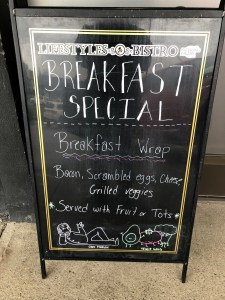 LIFESTYLES BISTRO
BREAKFAST
SPECIAL
Breakfast Wrap
Bacon, Scrambled eggs, Cheese
Grilled veggies
*Served with Fruit or Tots*